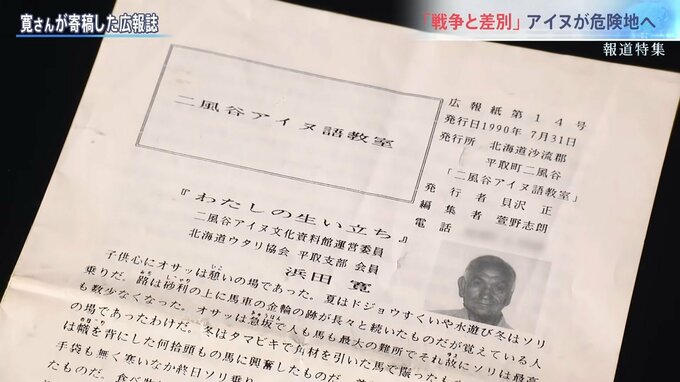 寛さんが寄稿した広報誌
「戦争と差別」アイヌが危険地へ
報道特集
二風谷アイヌ語教室
広報紙第14号
発行日1990年7月31日
発行所 北海道沙流郡
平取町二風谷
「二風谷アイヌ語教室」
発行者 貝沢 正
編集者 萱野志朗
電話
『わたしの生い立ち』
二風谷アイヌ文化資料館運営委員
北海道ウタリ協会 平取支部 会員
浜田 寛
子供心にオサッは憩いの場であった。夏はドジョウすくいや水遊び冬はソリ
乗りだ。路は砂利の上に馬車の金輪の跡が長々と続いたものだが覚えている人
も数少なくなった。オサッは急坂で人も馬も最大の難所でそれ故にソリは最高
の場であったわけだ。冬はタマビキで角材を引いた馬で賑ったもの
は幟を背にした何拾頭もの馬に興奮したものだ。
手袋も無く寒いなか終日ソリ乗り
たものだ。食べ